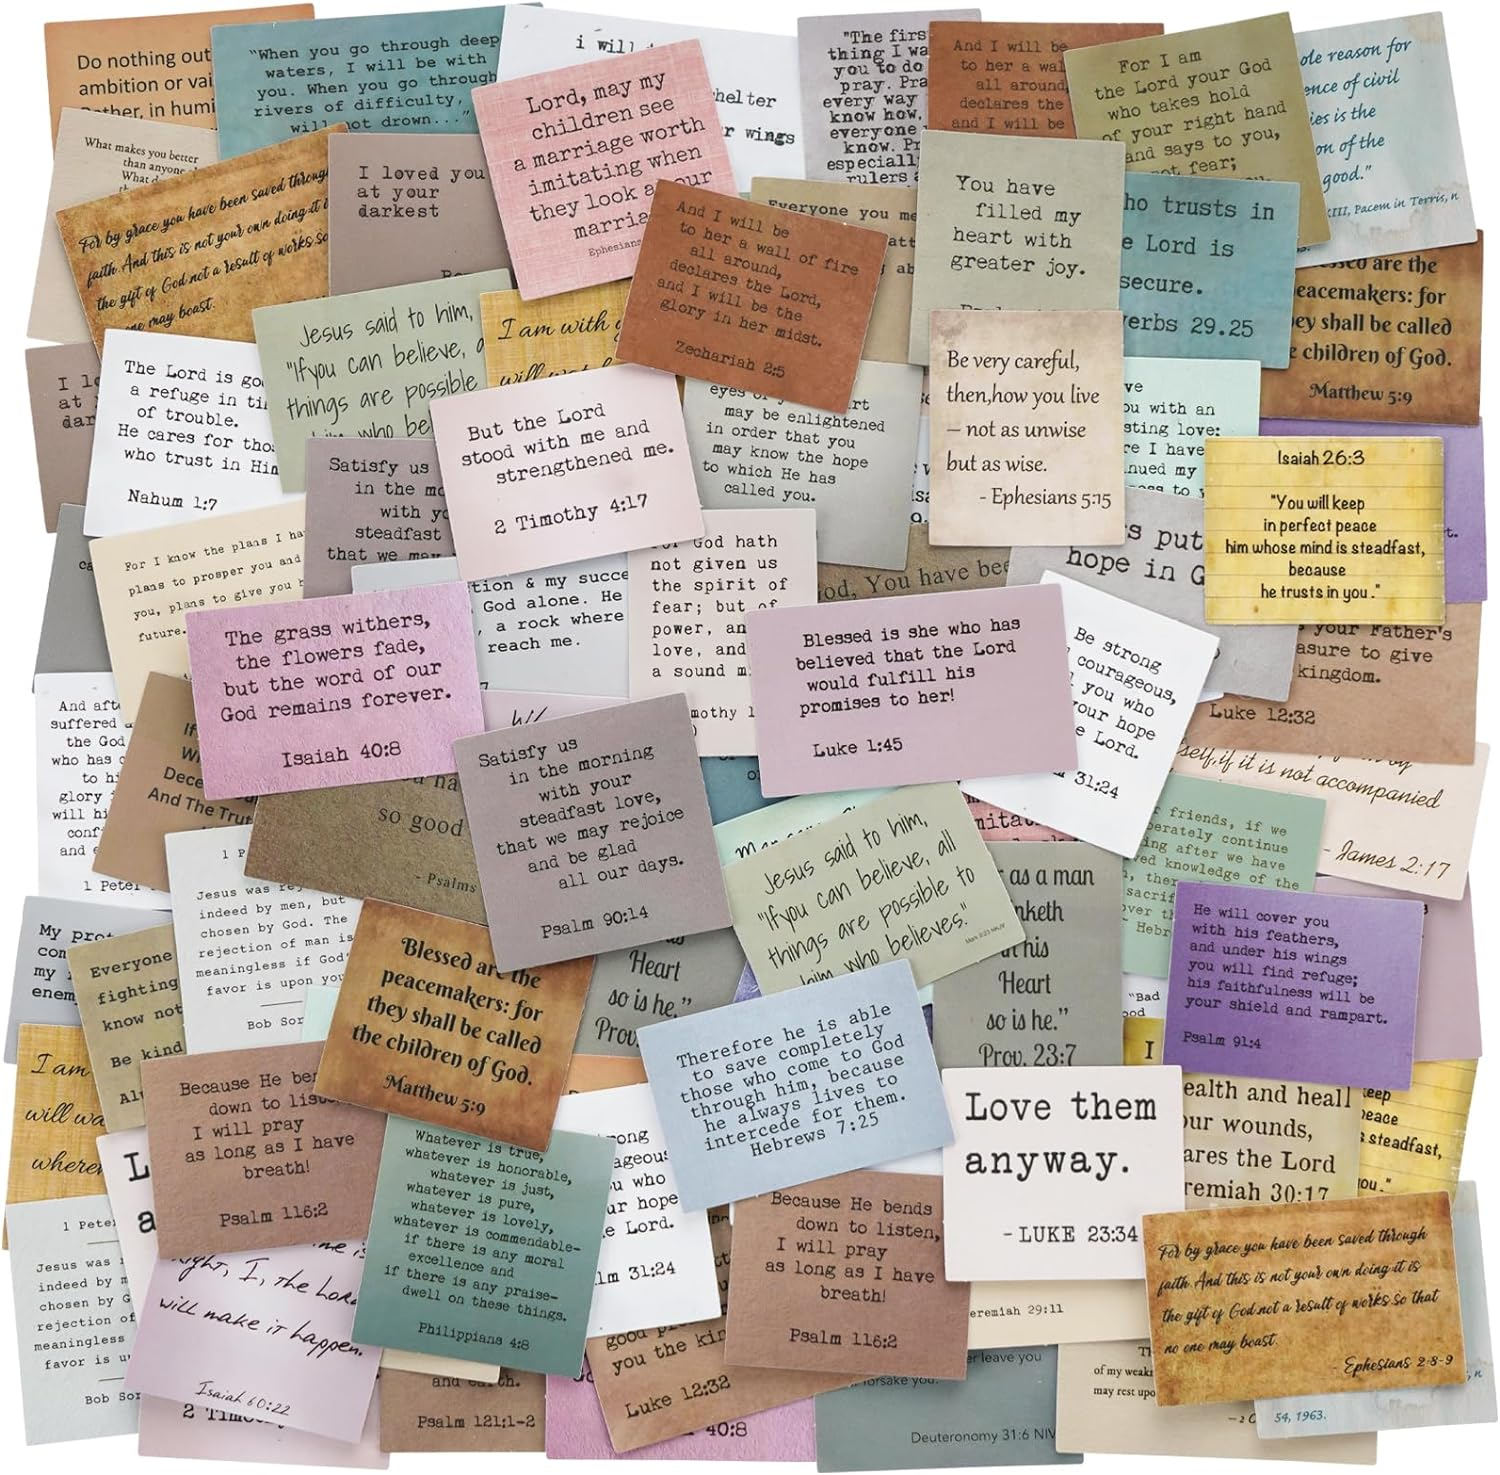 Do nothing out
ambition or vai
Rather, in humi
"When you go through deep
waters, I will be with
you. When you go through
rivers of difficulty,
will not drown..."
i will
shelter
r wings
Lord, may my
children see
a marriage worth
imitating when
they look a our
marria
Ephesians
"The firs
thing I wa
you to do
pray. Pra
every way
know how,
everyone
know. Pr
especiall
rulers a
And I will be
to her a wal
all around,
declares the
and I will be
For I am
the Lord your God
who takes hold
of your right hand
and says to you,
not fear;
ole reason for
ence of civil
ies is the
on of the
good."
XIII, Pacem in Terris, n
What makes you better
than anyone
What d
For by grace you have been saved throug
faith. And this is not your own doing;it i
the gift of God not a result of works,so
one may boast.
I loved you
at your
darkest
And I will be
to her a wall of fire
all around,
declares the Lord,
and I will be the
glory in her midst.
Zechariah 2:5
Everyone you me
You have
filled my
heart with
greater joy.
ho trusts in
e Lord is
secure.
verbs 29.25
essed are the
eacemakers: for
hey shall be called
e children of God.
Matthew 5:9
I lo
at
dar
The Lord is go
a refuge in ti
of trouble.
He cares for tho
who trust in Hi
Nahum 1:7
Jesus said to him,
"Ifyou can believe, a
things are possible
him who be
I am with
will wat
But the Lord
stood with me and
strengthened me.
2 Timothy 4:17
eyes
may be enlightened
in order that you
may know the hope
to which He has
called you.
Be very careful,
then,how you live
– not as unwise
but as wise.
- Ephesians 5:15
ve
ou with an
sting love:
re I have
nued my
ess to y
Isaiah 26:3
"You will keep
in perfect peace
him whose mind is steadfast,
because
he trusts in you."
Satisfy us
in the mo
with yo
steadfast
that we may
For I know the plans I ha
plans to prosper you and
you, plans to give you h
future.
tion & my succe
God alone. He
, a rock where
reach me.
For God hath
not given us
the spirit of
fear; but of
power, an
love, and
a sound m
mothy 1
God, You have bee
s put
hope in G
The grass withers,
the flowers fade,
but the word of our
God remains forever.
Isaiah 40:8
Blessed is she who has
believed that the Lord
would fulfill his
promises to her!
Luke 1:45
Be strong
courageous,
l you who
your hope
e Lord.
m 31:24
your Father's
asure to give
kingdom.
Luke 12:32
And afte
suffered a
the God
who has c
to hi
glory i
will hi
conf
and e
1 Peter
If
Wi
Dece
And The Trut
so good
- Psalms
Satisfy us
in the morning
with your
steadfast love,
that we may rejoice
and be glad
all our days.
Psalm 90:14
self,if it is not accompanied
- James 2:17
friends, if we
berately continue
ing after we have
ved knowledge of the
, ther
sacrif
over th
- Hebr
Jesus said to him,
"Ifyou can believe, all
things are possible to
him who believes."
Mark 9:23 NKJV
as a man
nketh
n his
Heart
so is he."
Prov. 23:7
He will cover you
with his feathers,
and under his wings
you will find refuge;
his faithfulness will be
your shield and rampart.
Psalm 91:4
1 P
Jesus was rej
indeed by men, but
chosen by God. The
rejection of man is
meaningless if God'
favor is upon you
Bob Sor
My prot
com
my
enem
Everyone
fighting
know not
Be kind
Alw
Blessed are the
peacemakers: for
they shall be called
the children of God.
Matthew 5:9
Heart
so is he."
Prov.
Therefore he is able
to save completely
those who come to God
through him, because
he always lives to
intercede for them.
Hebrews 7:25
"Bad
ood
I am
will wa
where
Because He ben
down to liste
I will pray
as long as I have
breath!
Psalm 116:2
Love them
anyway.
-LUKE 23:34
I
ealth and heal
our wounds,
ares the Lord
remiah 30:17
keep
peace
s steadfast,
you."
Whatever is true,
whatever is honorable,
whatever is just,
whatever is pure,
whatever is lovely,
whatever is commendable-
if there is any moral
excellence and
if there is any praise-
dwell on these things.
Philippians 4:8
rong
ageous,
u who
ur hope
e Lord.
lm 31:24
Because He bends
down to listen,
I will pray
as long as I have
breath!
Psalm 116:2
1 Peter
Jesus was
indeed by m
chosen by G
rejection of
meaningless
favor is u
Bob Sor
right, I, the Lord
will make it happen.
Isaiah 60:22
2 Timothy
and earth.
Psalm 121:1-2
good
you the kin
Luke 12:32
40:8
eremiah 29:11
er leave you
forsake you.
Deuteronomy 31:6 NIV
of my weakn
may rest upo
For by grace you have been saved through
faith. And this is not your own doing;it is
the gift of God not a result of works,so that
no one may boast.
- Ephesians 2:8-9
54, 1963.